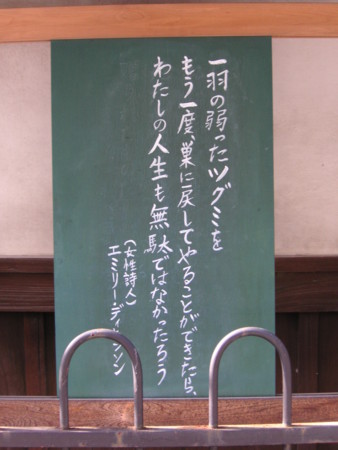 一羽の弱ったツグミを
もう一度、巣に戻してやることができたら、
わたしの人生も無駄ではなかったろう
(女性詩人)
エミリー・ディキンソン